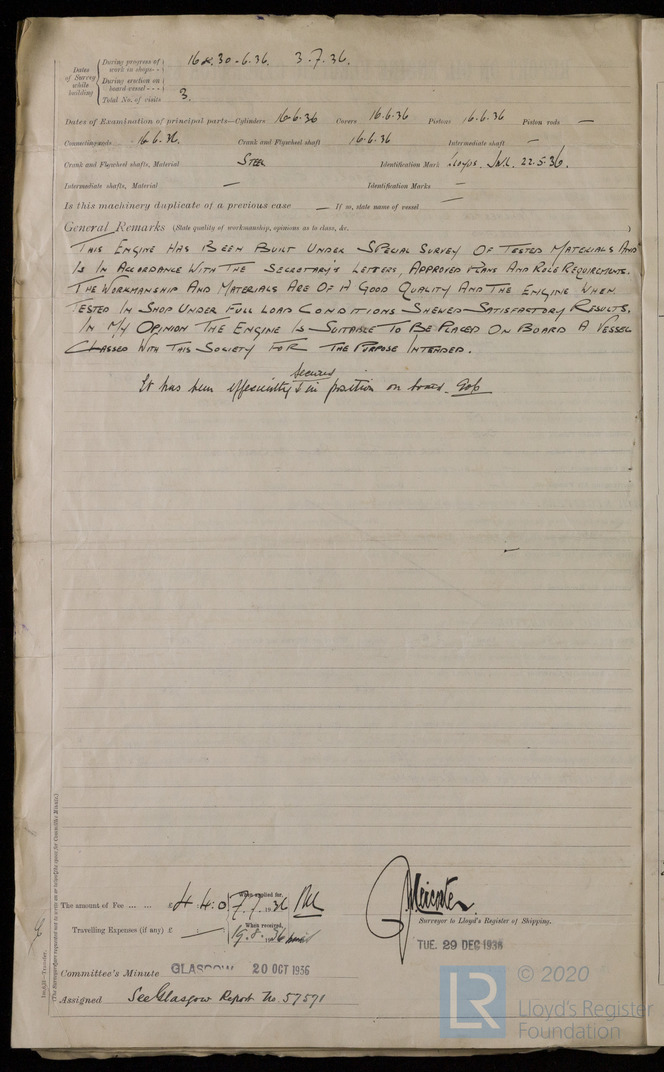 Dates of Survey while building
During progress of work in shops - - 16 & 30-6.36. 3.7.36.
During erection on board vessel - - -
Total No. of visits 3.
Dates of Examination of principal parts—Cylinders 16.6.36 Covers 16.6.36 Pistons 16.6.36 Piston rods —
Connecting rods 16.6.36. Crank and Flywheel shaft 16.6.36 Intermediate shaft —
Crank and Flywheel shafts, Material STEEL Identification Mark LLOYDS. 22.5.36.
Intermediate shafts, Material — Identification Marks —
Is this machinery duplicate of a previous case — If so, state name of vessel —
General Remarks (State quality of workmanship, opinions as to class, &c. )
THIS ENGINE HAS BEEN BUILT UNDER SPECIAL SURVEY OF TESTED MATERIALS AND
IS IN ACCORDANCE WITH THE SECRETARY'S LETTERS, APPROVED PLANS AND RULE REQUIREMENTS.
THE WORKMANSHIP AND MATERIALS ARE OF A GOOD QUALITY AND THE ENGINE WHEN
TESTED IN SHOP UNDER FULL LOAD CONDITIONS SHEWED SATISFACTORY RESULTS.
IN MY OPINION THE ENGINE IS SUITABLE TO BE PLACED ON BOARD A VESSEL
CLASSED WITH THIS SOCIETY FOR THE PURPOSE INTENDED.
secured
It has been efficiently in position on board.
The amount of Fee ... ... £ 4:4:0 When applied for, 7.7.1936
Travelling Expenses (if any) £ : When received, 19.8.1936
Surveyor to Lloyd's Register of Shipping.
TUE. 29 DEC 1936
Committee's Minute GLASGOW 20 OCT 1936
Assigned See Glasgow Report No. 57571
(The Surveyors are requested not to write on or below the space for Committee's Minute.)
© 2020
LR
Lloyd's Register
Foundation